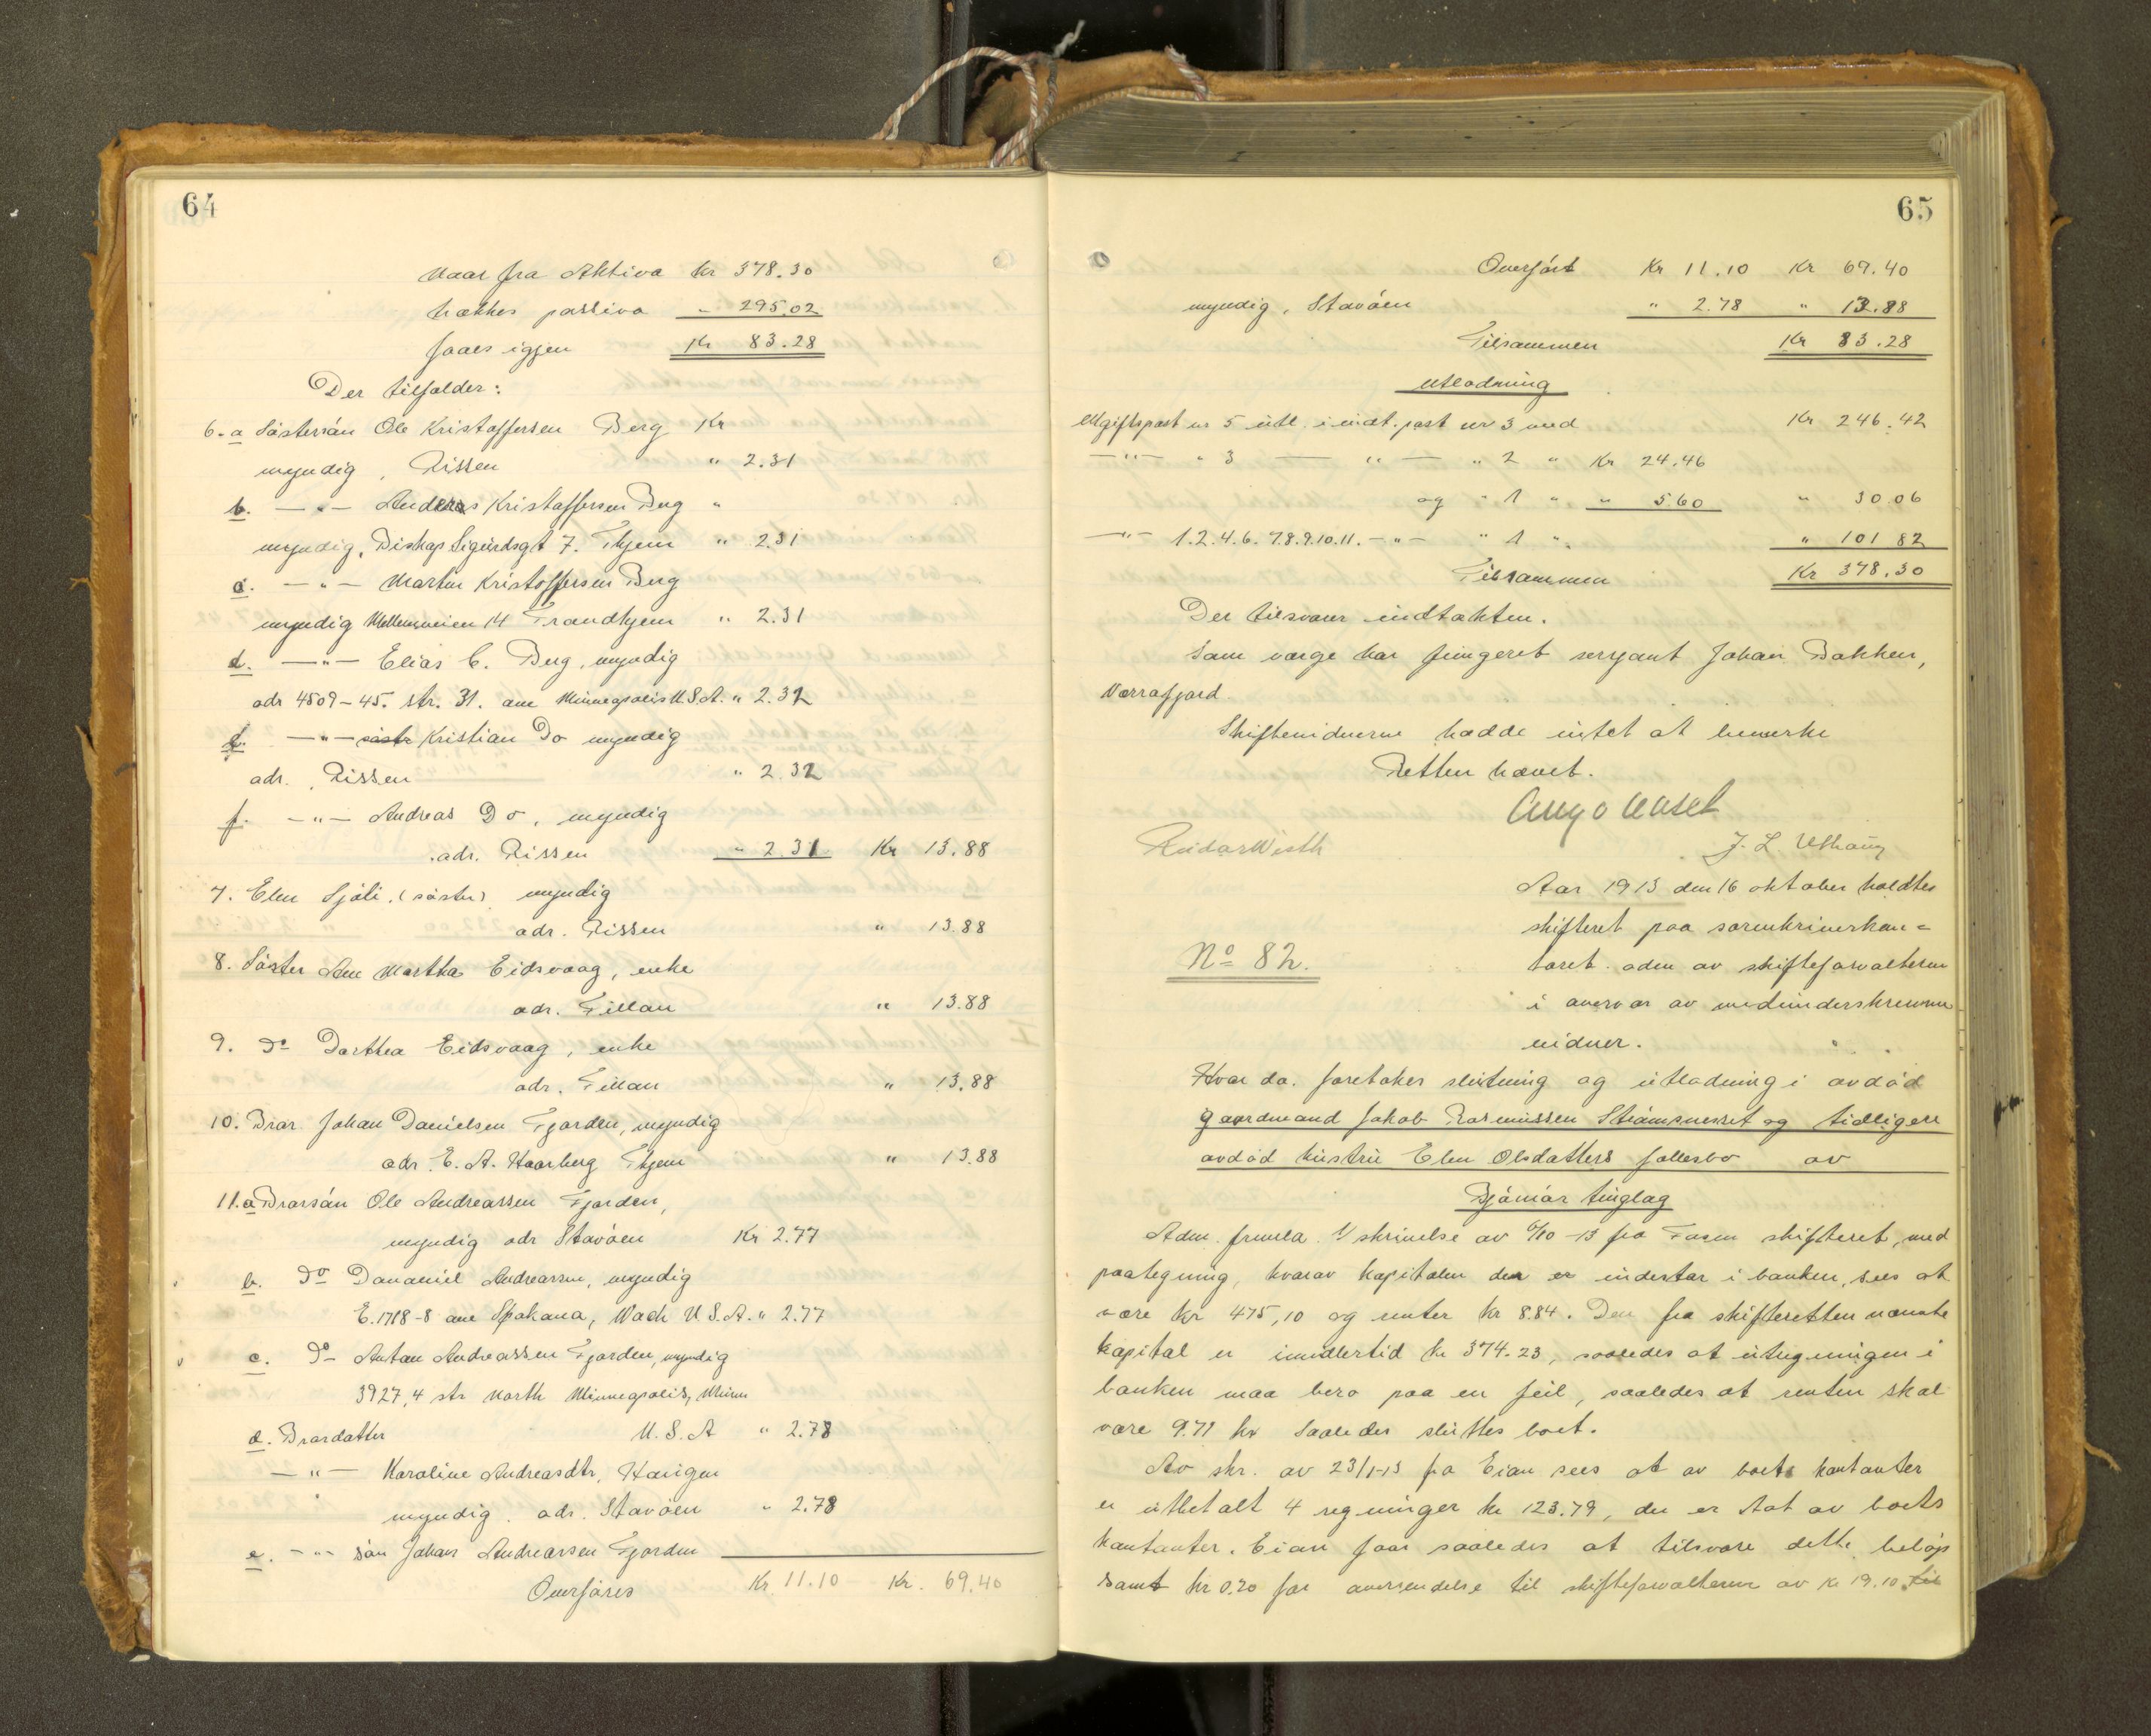 64
Naar fra Aktiva Kr 378.30
trækkes passiva " 295.02
faaes igjen Kr 83.28
Der tilfalder:
6. a Søstersøn Ole Kristoffersen Berg Kr
myndig, Rissen " 2.31
b. —"— Anders Kristoffersen Berg "
myndig, Biskop Sigurdsgt 7. Thjem " 2.31
c. —"— Martin Kristoffersen Berg
myndig Mellemveien 14 Trondhjem " 2.31
d. —"— Elias C. Berg, myndig
adr 4509-45. str. 31. ave Minneapolis U.S.A. " 2.32
e. —"— søstr Kristian Do myndig
adr. , Rissen " 2.32
f. —"— Andreas Do, myndig
adr. Rissen " 2.31 Kr 13.88
7. Elen Sjøli, (søster) myndig
adr. Rissen " 13.88
8. Søster Ane Martha Eidsvaag, enke
adr. Fillan " 13.88
9. Do Dorthea Eidsvaag, enke
adr. Fillan " 13.88
10. Bror Johan Danielsen Fjorden, myndig
adr. E. A. Haarberg Thjem " 13.88
11. a Brorsøn Ole Andreassen Fjorden,
myndig adr Stavøen Kr 2.77
b. Do Andreassen, myndig
E.1718-8 ave Spokana, Wach U.S.A. " 2.77
c. Do Anton Andreassen Fjorden, myndig
3927, 4 str North Minneapolis, Minn
U.S.A " 2.78
d. Brordatter
—"— Karoline Andreasdtr, Haugen
myndig. adr. Stavøen " 2.78
e. —"— søn Johan Andreassen Fjorden
Overføres Kr 11.10 Kr. 69.40
65
Overført Kr 11.10 Kr 69.40
myndig, Stavøen " 2.78 " 13.88
Tilsammen Kr 83.28
Utlodning
Utgiftspost nr 5 utl. i indt. post nr 3 med Kr 246.42
—"— " 3 — " — " 2 " Kr 24.46
og " 1 " " 5.60 " 30.06
—"— 1.2.4.6.7.8.9.10.11. —"— " 1 ". " 101 82
Tilsammen Kr 378.30
Der tilsvarer indtækten.
Som værge har fungeret sersjant Johan Bakken,
Norrafjord.
Skiftevidnerne hadde intet at bemerke
Retten hævet.
Reidar Wisth J. L. Uthaug
Aar 1913 den 16 oktober holdtes
skifteret paa sorenskriverkon=
toret. aden av skifteforvalteren
No 82.
i overvær av medunderskrevne
vidner.
Hvor da foretokes slutning og utlodning i avdød
gaardmand Jakob Rasmussen Strømsnesset og tidligere
avdød hustru Elen Olsdatters fællesbo av
Bjønør tinglag
Adm. fremla. 1/ skrivelse av 6/10 -13 fra Fosen skifteret, med
paategning, hvorav kapitalen der er indestar i banken, sees at
være kr 475,10 og renter kr 8.84. Den fra skifteretten nævnte
kapital er imidlertid kr 374.23, saaledes at utregningen i
banken maa bero paa en feil, saaledes at renten skal
være 9.71 kr Saaledes sluttes boet.
Av skr. av 23/1-13 fra Eian sees at av boets kontanter
er utbetalt 4 regninger kr 123.79, der er tat av boets
kontanter. Eian faar saaledes at tilsvare dette beløp
samt kr 0.20 for oversendelse til skifteforvalteren av kr 19.10 til